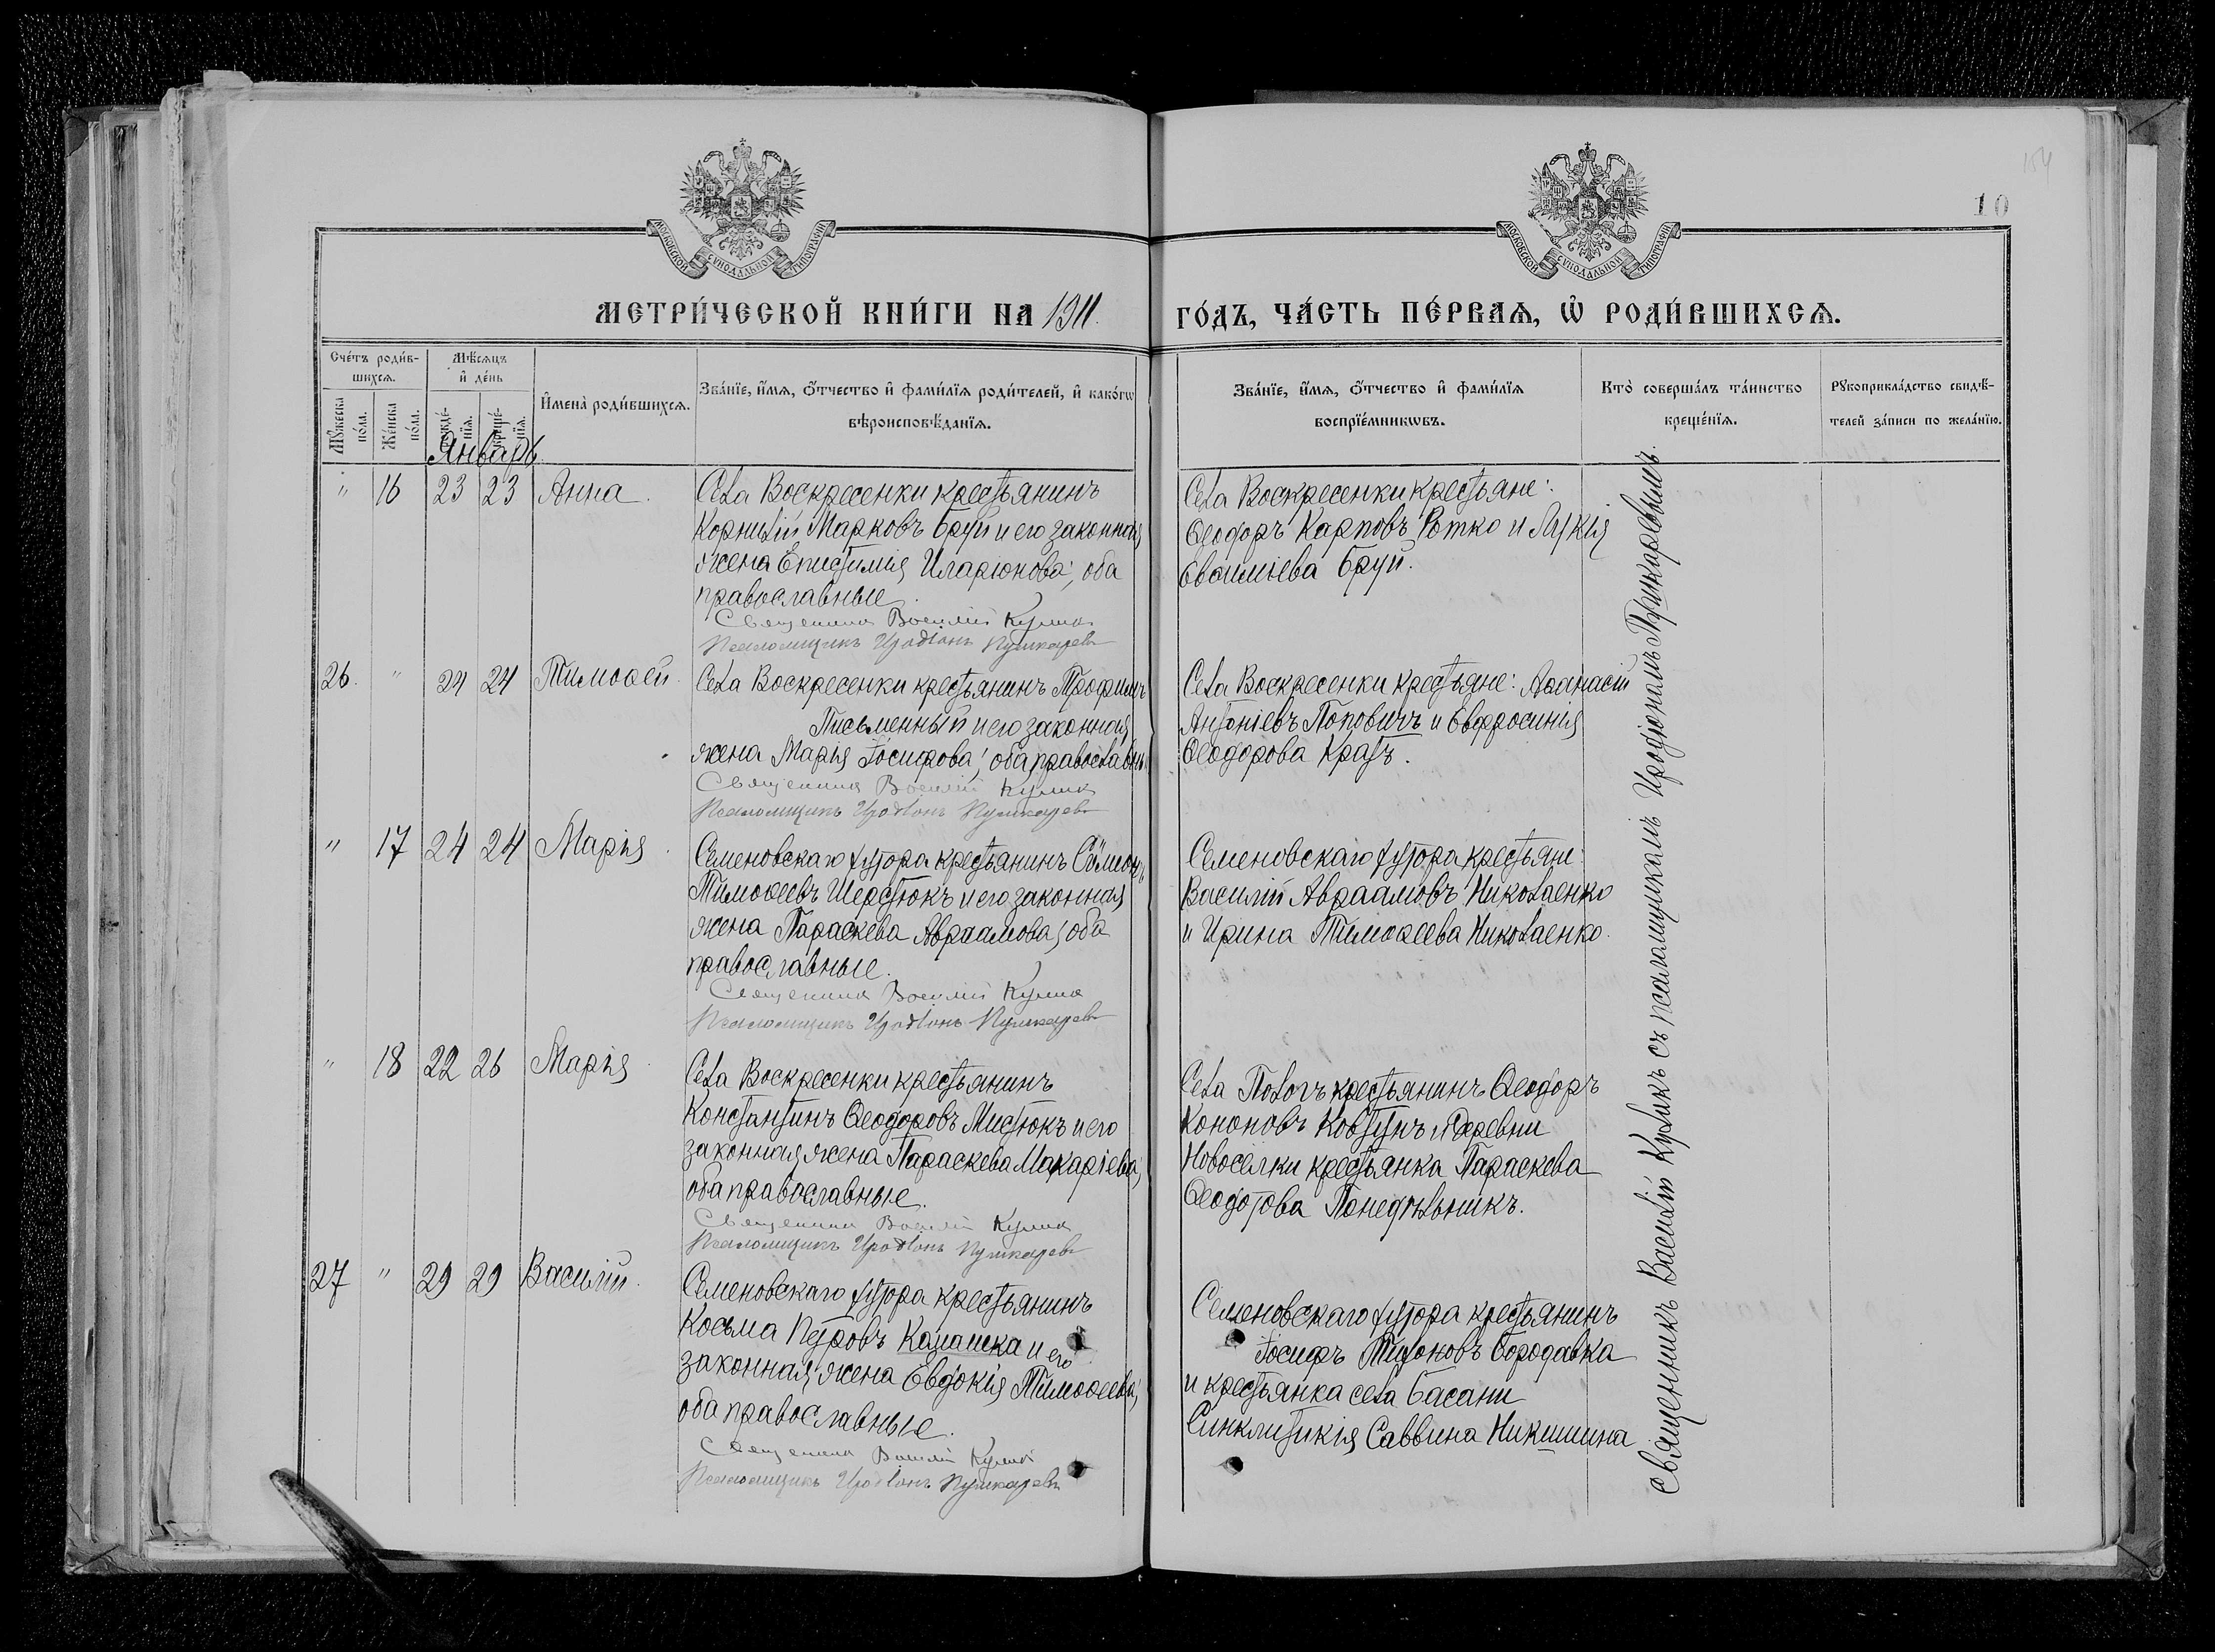 154
10
МОСКОВСКОЙ СѴНОДАЛЬНОЙ ТИПОГРАФІИ
МОСКОВСКОЙ СѴНОДАЛЬНОЙ ТИПОГРАФІИ
МЕТРИ́ЧЕСКОЙ КНИ́ГИ НА 1911.
ГО́ДЪ, ЧА́СТЬ ПЕ́РВАѦ, Ѡ҆ РОДИ́ВШИХСѦ.
Сче́тъ роди́в-
шихсѧ.
Мꙋжеска по́ла.
Же́нска по́ла.
Мѣ́сѧцъ
и҆ де́нь
рожде́-нїѧ.
креще́-нїѧ.
Январь.
И҆мена̀ роди́вшихсѧ.
Зва́нїе, и҆́мѧ, ѻ҆́тчество и҆ фами́лїѧ роди́телей, и҆ како́гѡ
вѣроисповѣ́данїѧ.
Зва́нїе, и҆́мѧ, ѻ҆́тчество и҆ фами́лїѧ
воспрїе́мникѡвъ.
Кто̀ соверша́лъ та́инство
креще́нїѧ.
Рꙋкоприкла́дство свидѣ́-
телей за́писи по жела́нїю.
" 16 23 23 Анна.
Села Воскресенки крестьянинъ
Корнилій Марковъ Бруй и его законная
жена Епистимія Иларіонова; оба
православные.
Священникъ Василій Кулик
Псаломщикъ Иродіонъ Пушкаревъ
Села Воскресенки крестьяне:
Ѳеодоръ Карповъ Ротко и Лукія
Евсиміева Бруй.
26. " 24 24 Тимоѳей.
Села Воскресенки крестьянинъ Трофимъ
Письменный и его законная
жена Марія Іосифова; оба православн.
Священникъ Василій Кулик
Псаломщикъ Иродіонъ Пушкаревъ
Села Воскресенки крестьяне: Аѳанасій
Антоніевъ Поповичъ и Евфросинія
Ѳеодорова Кратъ.
" 17 24 24 Марія.
Семеновскаго хутора крестьянинъ Сѵмеонъ
Тимоѳеевъ Шерстюкъ и его законная
жена Параскева Авраамова; оба
православные.
Священникъ Василій Кулик
Псаломщикъ Иродіонъ Пушкаревъ
Семеновскаго хутора крестьяне:
Василій Авраамовъ Николаенко
и Ирина Тимоѳеева Николаенко.
" 18 22 26 Марія.
Села Воскресенки крестьянинъ
Константинъ Ѳеодоровъ Мистюкъ и его
законная жена Параскева Макаріева;
оба православные.
Священникъ Василій Кулик
Псаломщикъ Иродіонъ Пушкаревъ
Села Пологъ крестьянинъ Ѳеодоръ
Кононовъ Ковтунъ и деревни
Новоселки крестьянка Параскева
Ѳеодотова Понедѣльникъ.
27 " 29 29 Василій.
Семеновскаго хутора крестьянинъ
Косьма Петровъ и его
законная жена Евдокія Тимоѳеева;
оба православные.
Священникъ Василій Кулик
Псаломщикъ Иродіонъ Пушкаревъ
Семеновскаго хутора крестьянинъ
Іосифъ Тихоновъ Бородавка
и крестьянка села Басани
Синклитикія Саввина Никишина.
Священникъ Василій Куликъ съ псаломщикомъ Иродіономъ Пушкаревымъ